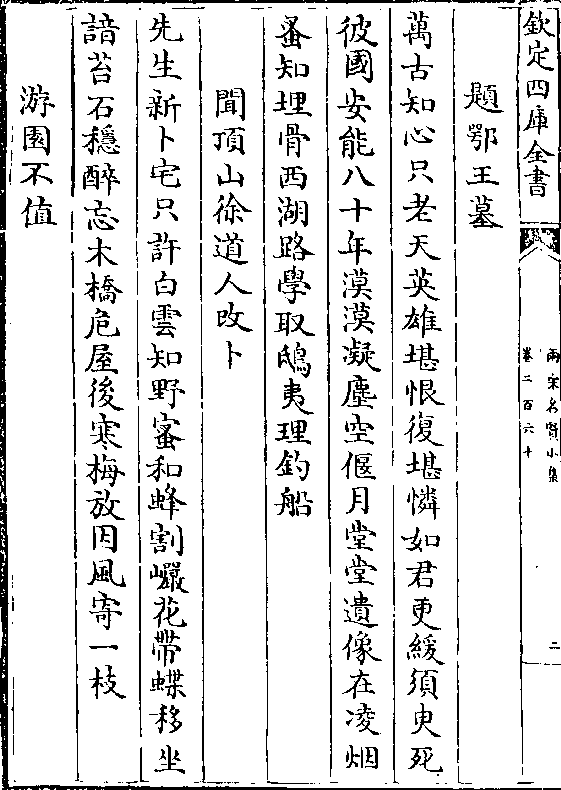 欽定四庫全書
兩宋名賢小集
卷二百六十
二
題鄂王墓
萬古知心只老天英雄堪恨復堪憐如君更緩須臾死
彼國安能八十年漠漠凝塵空偃月堂堂遺像在凌烟
蚤知埋骨西湖路學取鴟夷理釣船
聞頂山徐道人改卜
先生新卜宅只許白雲知野蜜和蜂割巖花帶蝶移坐
諳苔石穩醉忘木橋危屋後寒梅放因風寄一枝
游園不值